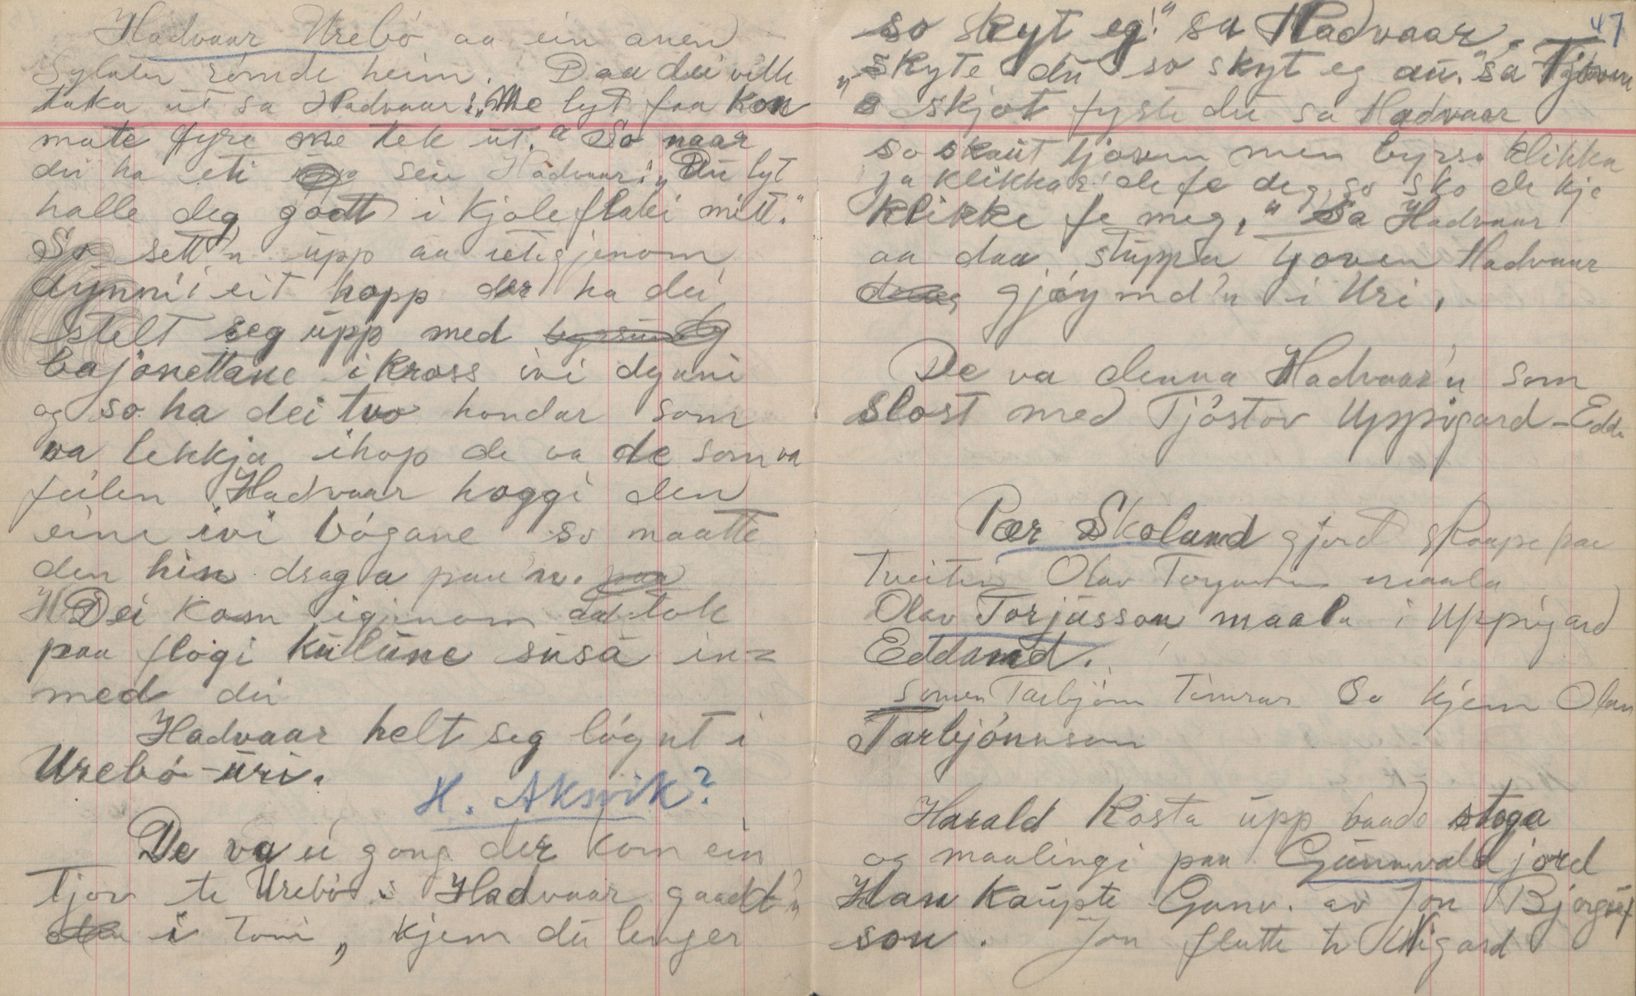 Hadvaar Urebö aa ein anen
Sylater römde heim. Daa dei ville
taka ut sa Hadvaar: „Me lyt faa kon
mate fyre me tek ut." So naar
dei ha eti sei Hadvaar: „Du lyt
halle deg godt i kjoleflaki mitt."
So sett'n upp aa ut igjenom
dynni eit hopp der ha dei
stelt seg upp med
bajonettane i kross ivi dynni
og so ha dei tvo hondar som
va lekkja ihop de va de som va
feilen Hadvaar hoggi den
eine ivi bógane so maatte
den hin draga paa 'n.
Dei kom igjenom tok
paa flogi kulune susa in=
med dei
Hadvaar helt seg lógnt i
Urebö-uri.
H. Aksvik?
De va ei gong der kom ein
Tjov te Urebö. Hadvaar gaadd'n
i Toni „kjem du lenger
47
so skyt eg!" sa Hadvaar. –
„Skyte du so skyt eg au." sa Tjoven
skjot fyst du sa Hadvaar
so skaut tjoven men byrsa klikka
ja klikkar de fe deg so sko de kje
klikke fe meg," sa Hadvaar
aa daa stuppa tjoven Hadvaar
gjöymd'n i Uri.
De va denna Hadvaar'n som
slost med Tjöstov Uppigard-Edda
Pær Skoland gjord skaape paa
Tveiten Olav maala
Olav Torjusson maala i Uppigard
Eddand.
Sonen Tarbjön Timrar So kjem Olav
Tarbjönnson
Harald Rosta upp baade stoga
og maalingi paa Gunnvaldjord
Han kaupte Gunv. av Jon Björgulf
son. Jon flutte te Nigard